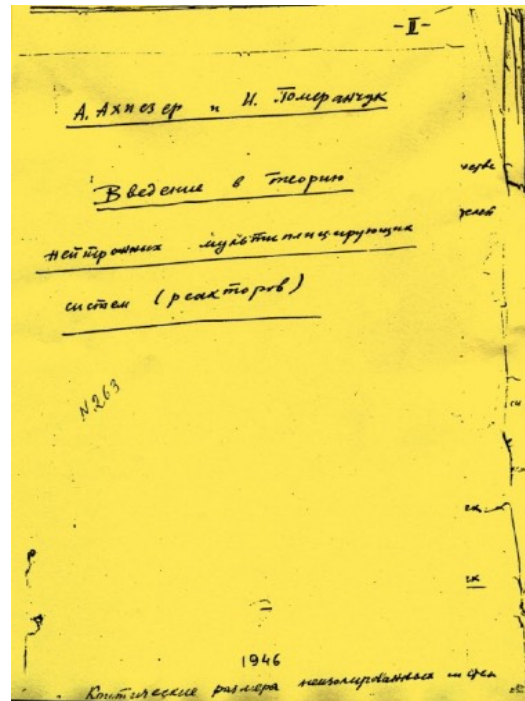 -II-
А. Ахиезер и И. Померанчук
Введение в теорию
нейтронных мультиплицирующих
систем (реакторов)
N.263
1946
Критические размеры неизолированных